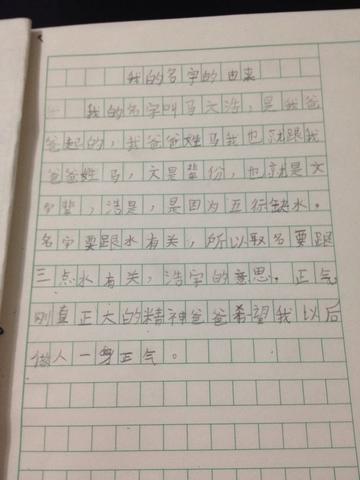 我的名字的由来
我的名字叫马文浩，是我爸
爸起的，我爸爸姓马我也就跟我
爸爸姓马，文是辈份，也就是文
字辈，浩是，是因为五行缺水。
名字要跟水有关，所以取名要跟
三点水有关，浩字的意思。正气
刚直正大的精神爸爸希望我以后
做人一身正气。